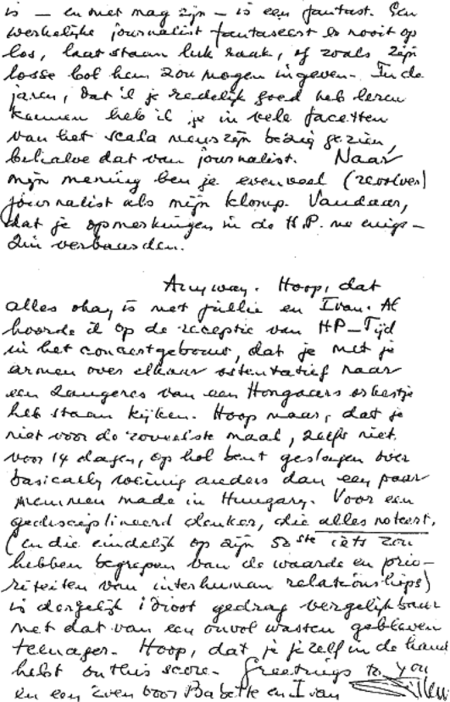 is – en niet mag zijn – is een fantast. Een
werkelijke journalist fantaseert er nooit op
los, laat staan luk raak, of zoals zijn
losse bol hem zou mogen ingeven. In de
jaren, dat ik je redelijk goed heb leren
kennen heb ik je in vele facetten
van het scala mens zijn bezig gezien,
behalve dat van journalist. Naar
mijn mening ben je evenveel (revolver)
journalist als mijn klomp. Vandaar,
dat je opmerkingen in de H.P. me enigs-
zin verbaasden.
Anyway. Hoop, dat
alles okay is met jullie en Ivan. Al
hoorde ik op de receptie van HP-Tijd
in het concertgebouw, dat je met je
armen over elkaar ostentatief naar
een zangeres van een Hongaars orkestje
heb staan kijken. Hoop maar, dat je
niet voor de zoveelste maal, zelfs niet
voor 14 dagen, op hol bent geslagen over
basically weinig anders dan een paar
memmen made in Hungary. Voor een
gedisciplineerd denker, die alles noteert,
(en die eindelijk op zijn 50ste iets zou
hebben begrepen van de waarde en prio-
riteiten van interhuman relationships)
is dergelijk idioot gedrag vergelijkbaar
met dat van een onvolwassen gebleven
teenager. Hoop, dat je jezelf in de hand
hebt on this score. Greetings to you
en een zoen voor Babette en Ivan Willem